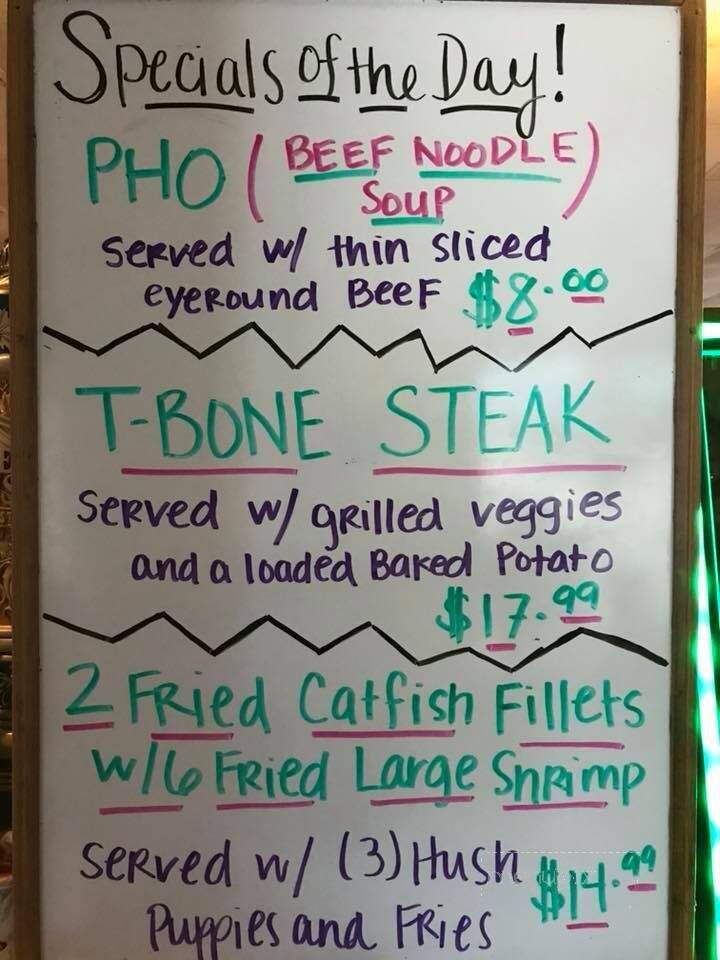 Specials of the Day!
PHO (BEEF NOODLE
Soup)
Served w/ thin sliced
eyeround BEEF $8.00
T-BONE STEAK
Served w/ grilled veggies
and a loaded Baked Potato
$17.99
2 Fried Catfish Fillets
w/6 Fried Large Shrimp
Served w/ (3) Hush
Puppies and Fries
$14.99